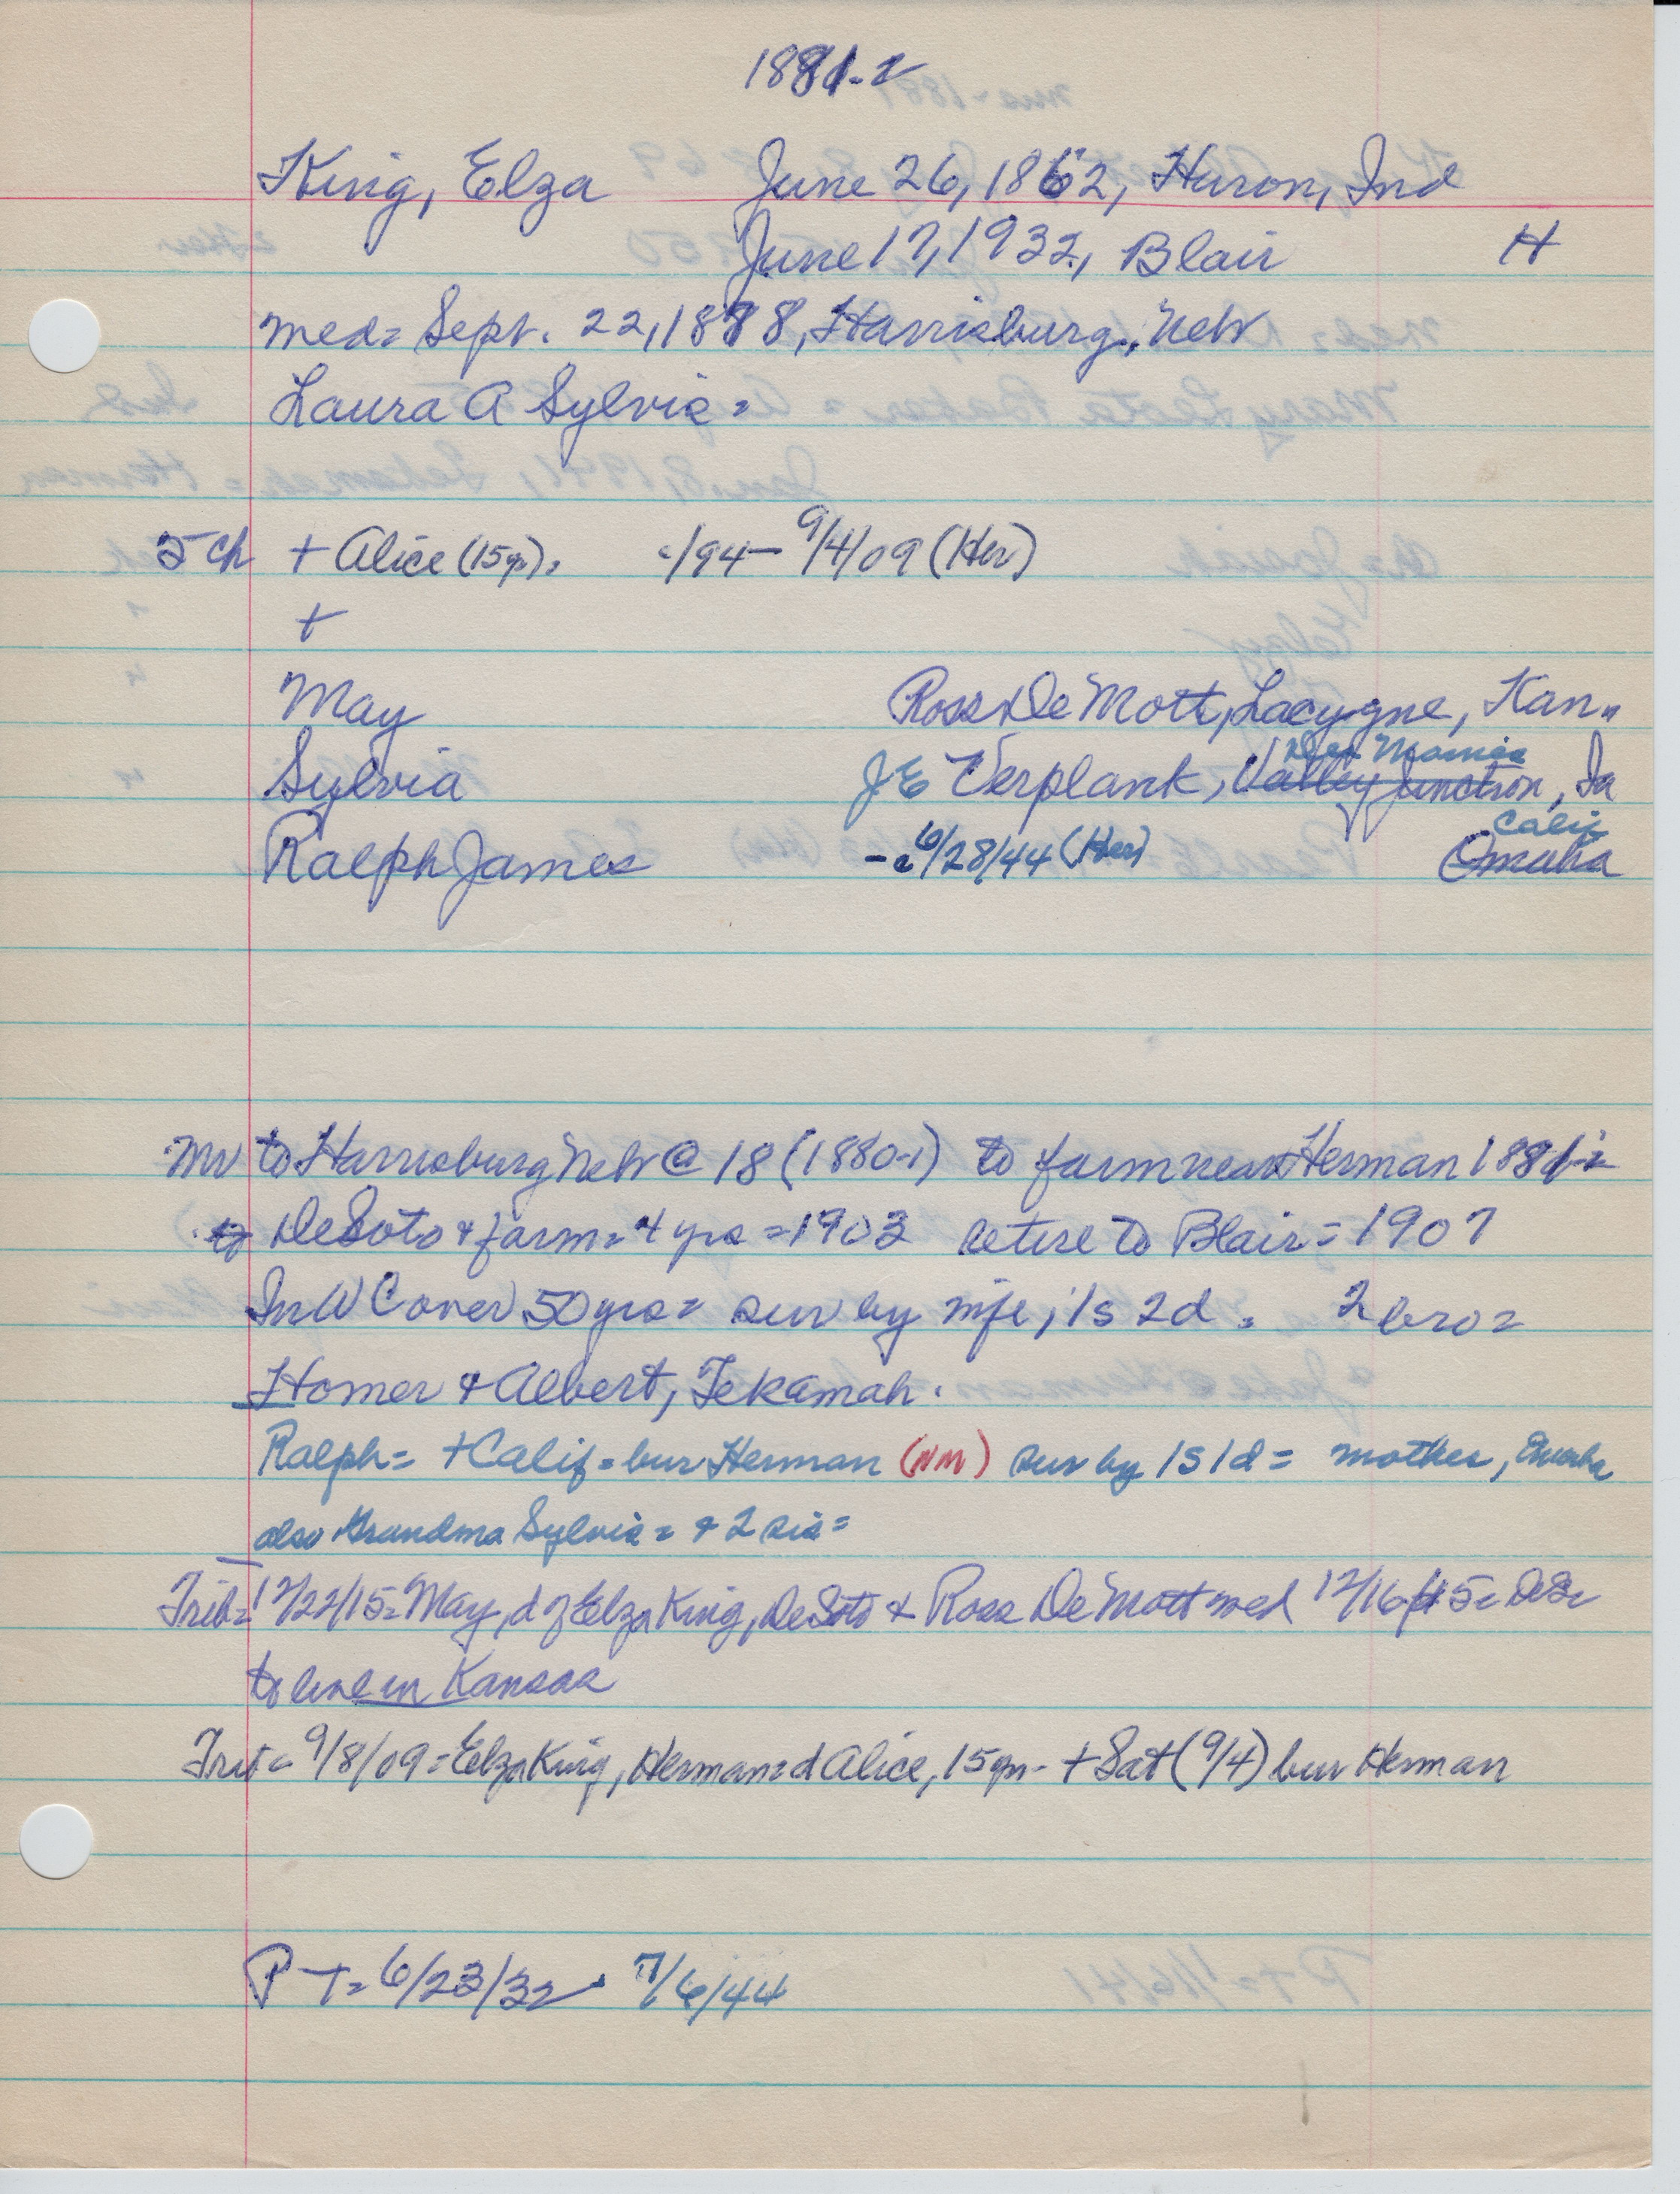 1881-2
King, Elza June 26, 1862, Huron, Ind
June 17, 1932, Blair H
med= Sept. 22, 1888, Harrisburg, Neb
Laura A Sylvis=
5 ch + Alice (15yr)= c/94 - 9/4/09 (Her)
+
May Ross DeMott, Lacygne, Kan.
Des Moines
Sylvia J E Verplank, Valley Junction, Ia
Calif
Ralph James - c 6/28/44 (Her) Omaha
Mv to Harrisburg Neb @ 18 (1880-1) to farm near Herman 1881-2
to DeSoto & farm= 4 yrs = 1903 retire to Blair= 1907
In W C over 50 yrs= sur by wife; 1s 2d. 2 bro=
Homer & Albert, Tekamah.
Ralph= + Calif= bur Herman (NM) sur by 1s 1d= mother, Omaha
also Grandma Sylvis= & 2 sis=
Trib= 12/22/15= May, d of Elza King, DeSoto & Ross DeMott med 12/16/15=
to live in Kansas
Trib= 9/8/09= Elza King, Herman= d Alice, 15 yr- + Sat (9/4) bur Herman
P T= 6/23/32 7/6/44